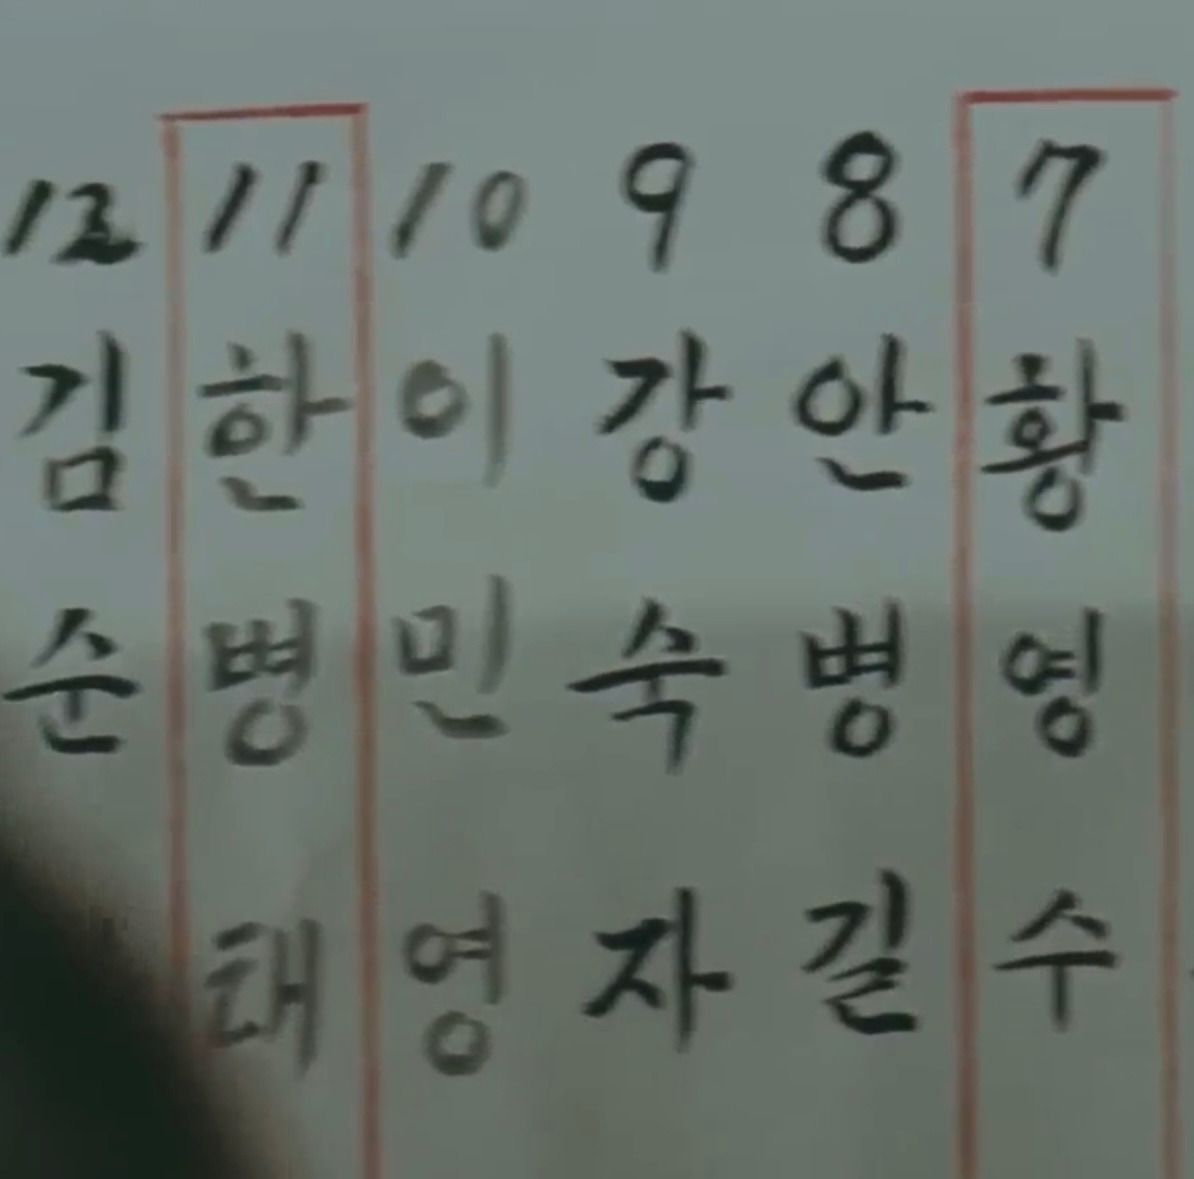 12 11 10 9 8 7
김순
한병태
이민영
강숙자
안병길
황영수